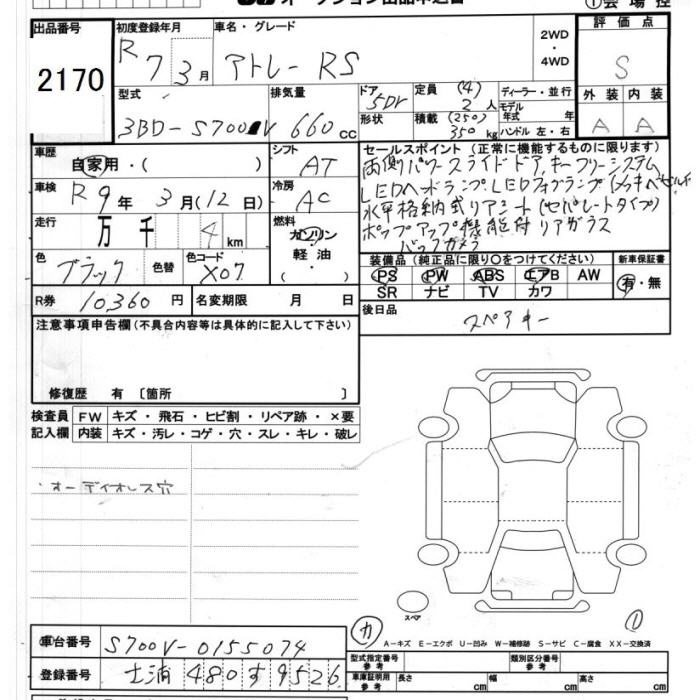 オークション出品申込書
①会場控
出品番号
2170
初度登録年月
R 7 3月
車名・グレード
アトレー RS
2WD
・
4WD
評価点
S
外装 内装
A A
型式
3BD-S700V
排気量
660cc
ドア
5Dr
形状
定員 (4)
2人
積載 (250)
350kg
ディーラー・並行
モデル
年式 年
ハンドル 左・右
車歴
自家用・( )
シフト
AT
車検
R 9年 3月(12日)
冷房
AC
走行
万 千 4 km
燃料
ガソリン
軽油
・( )
色
ブラック
色替
色コード
X07
R券
10360円
名変期限 月 日
セールスポイント(正常に機能するものに限ります)
両側パワースライドドア,キーフリーシステム
LEDヘッドランプ,LEDフォグランプ(メッキベゼル付
水平格納式リアシート(セパレートタイプ)
ポップアップ機能付リアガラス
バックカメラ
装備品(純正品に限り○をつけてください)
PS PW ABS エアB AW
SR ナビ TV カワ
新車保証書
有・無
後日品
スペアキー
注意事項申告欄(不具合内容等は具体的に記入して下さい)
修復歴 有 〔箇所 〕
検査員
記入欄
FW キズ・飛石・ヒビ割・リペア跡・×要
内装 キズ・汚レ・コゲ・穴・スレ・キレ・破レ
・オーディオレス穴
スペア
カ
①
A-キズ E-エクボ U-凹み W-補修跡 S-サビ C-腐食 XX-交換済
車台番号
S700V-0155074
登録番号
土浦 480 す 9526
型式指定番号
参考
類別区分番号
参考
車庫証明用
参考
長さ cm
幅 cm
高さ cm